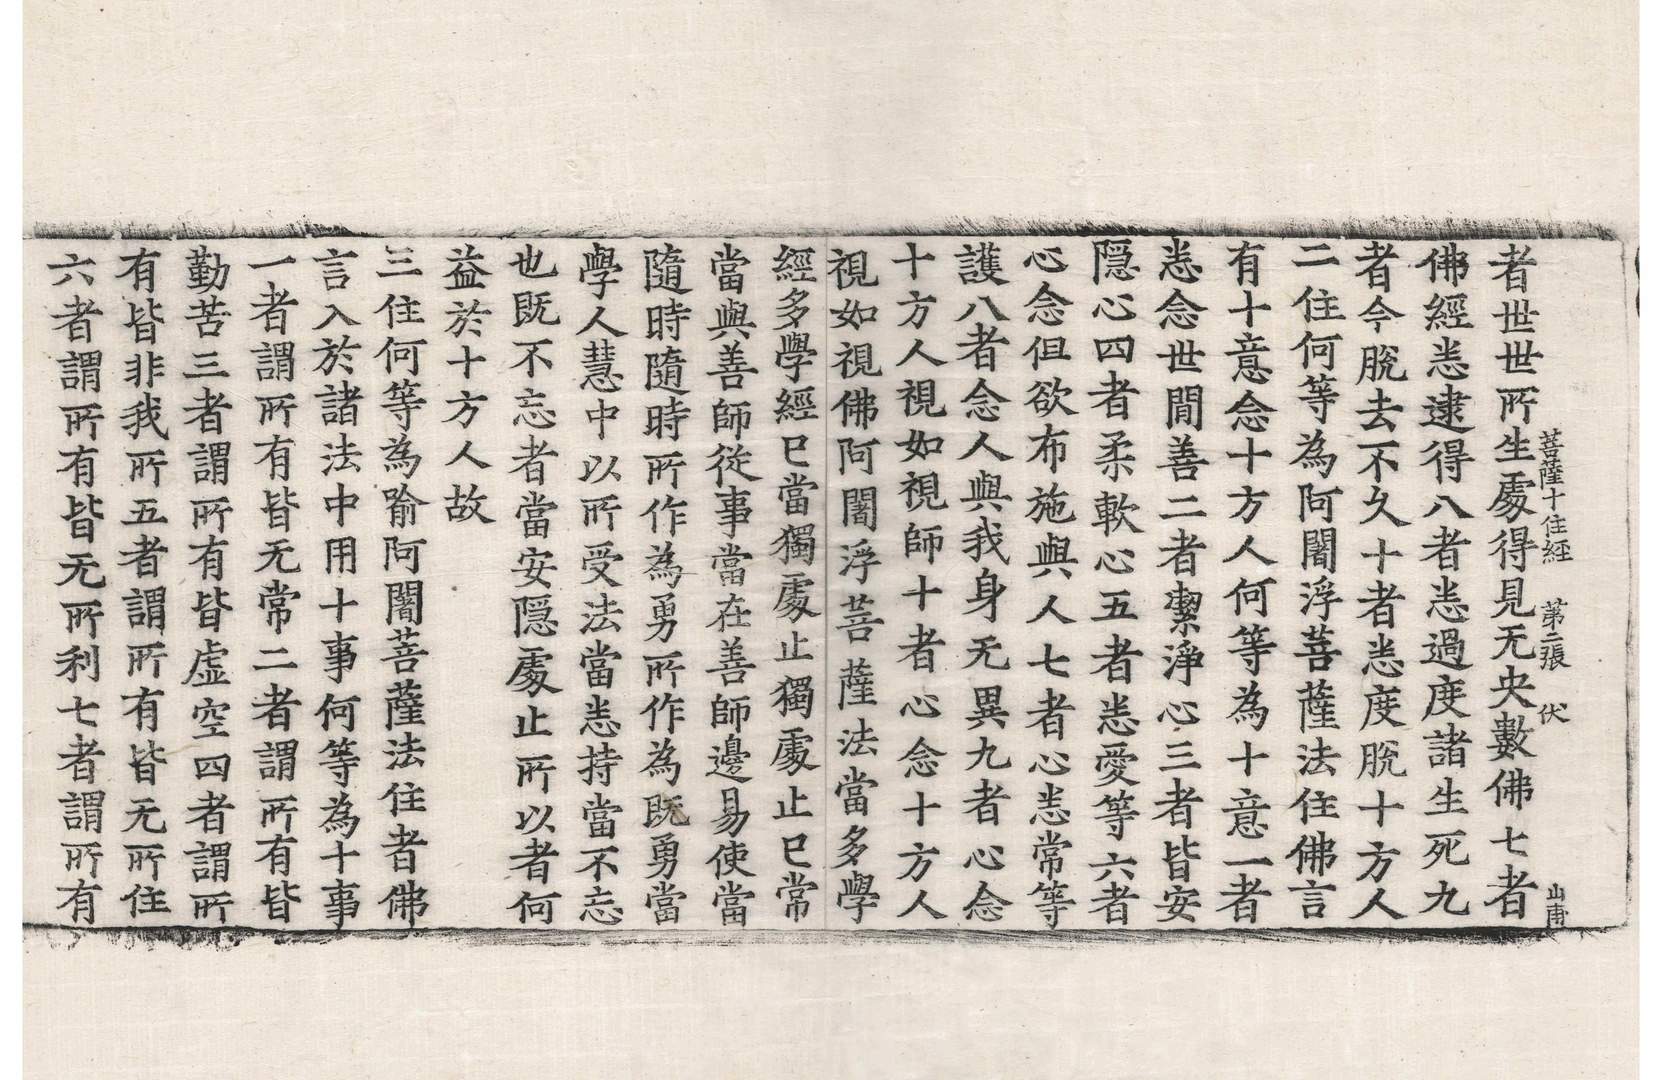 菩薩十住經 第二張 伏 山甫
者世世所生處得見无央數佛七者
佛經悉逮得八者悉過度諸生死九
者今脫去不久十者悉度脫十方人
二住何等為阿闍浮菩薩法住佛言
有十意念十方人何等為十意一者
悉念世間善二者潔淨心三者皆安
隱心四者柔軟心五者悉愛等六者
心念但欲布施與人七者心悉常等
護八者念人與我身无異九者心念
十方人視如視師十者心念十方人
視如視佛阿闍浮菩薩法當多學
經多學經已當獨處止獨處止已常
當與善師從事當在善師邊易使當
隨時隨時所作為勇所作為既勇當
學人慧中以所受法當悉持當不忘
也既不忘者當安隱處止所以者何
益於十方人故
三住何等為喻阿闍菩薩法住者佛
言入於諸法中用十事何等為十事
一者謂所有皆无常二者謂所有皆
勤苦三者謂所有皆虛空四者謂所
有皆非我所五者謂所有皆无所住
六者謂所有皆无所利七者謂所有